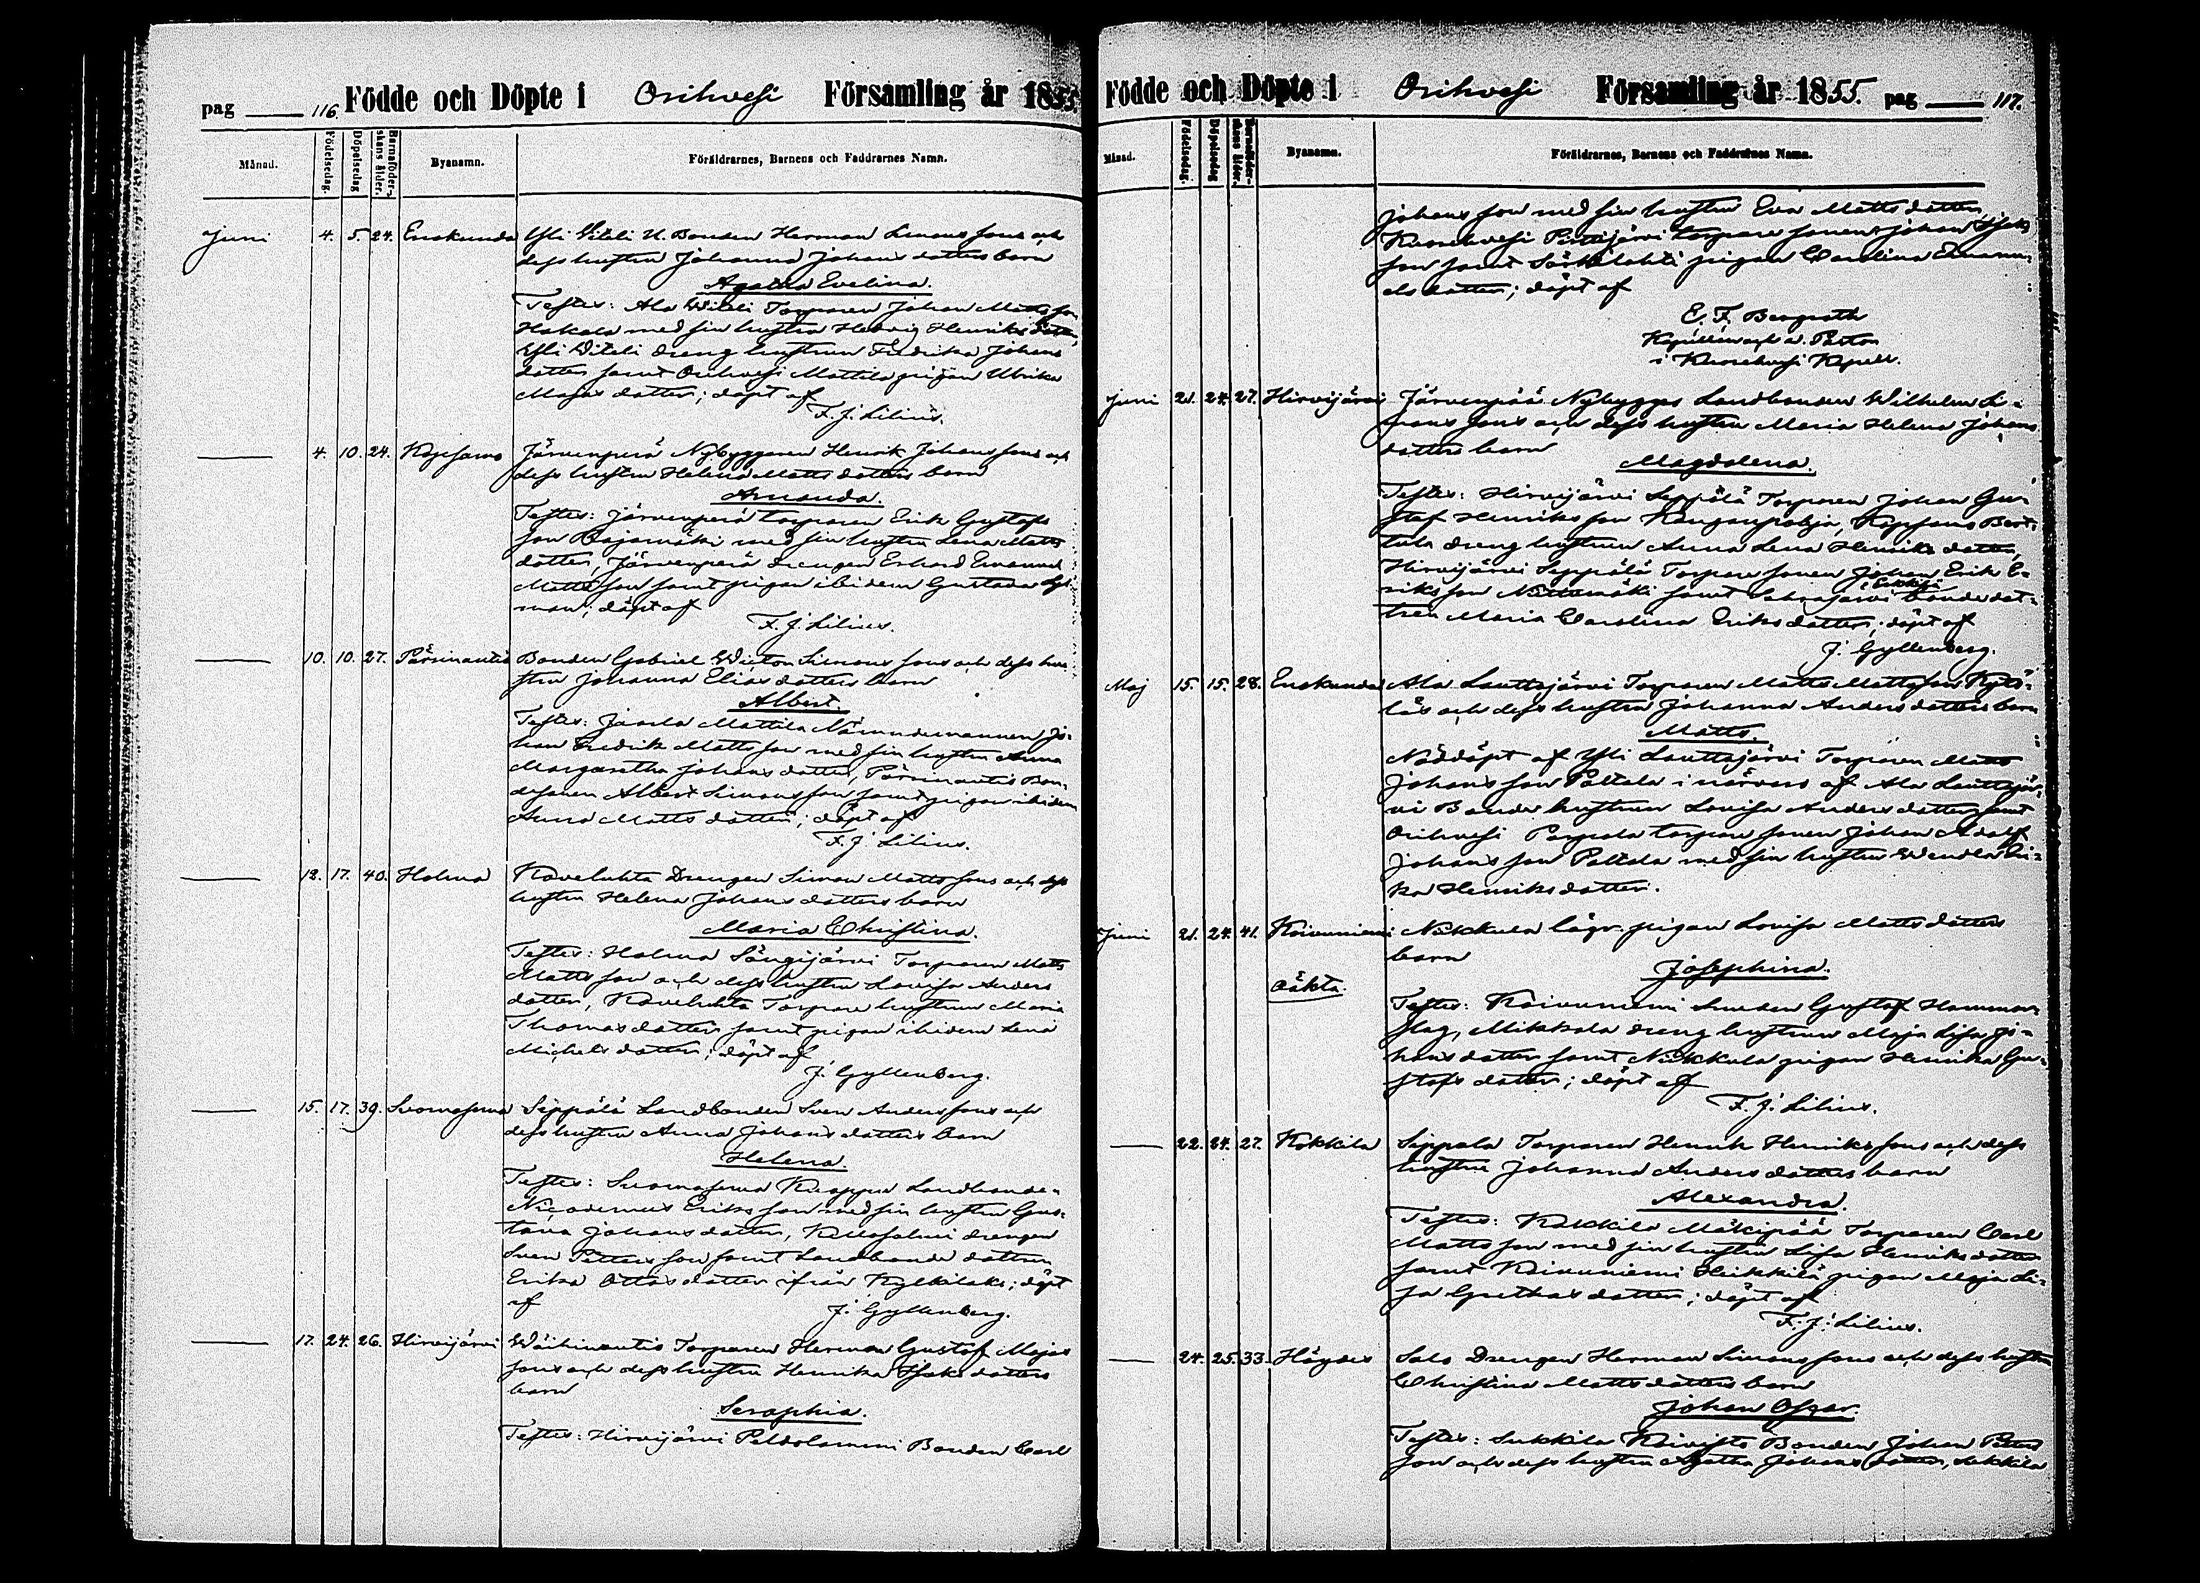 pag 116. Födde och Döpte i Orihvesi Församling år 1855
Månad. Födelsedag. Döpelsedag Barnaföder-skans ålder. Byanamn. Föräldrarnes, Barnens och Faddrarnes Namn.
Juni 4. 5. 24. Enokunda Yli Viteli N. Bonden Herman Simons sons och
dess hustru Johanna Johans dotters barn
Agatha Evelina.
Testes: Ala Witeli Torparen Johan Matts son
Hakala med sin hustru Hedvig Henriks dotter,
Yli Witeli dreng hustrun Fredrika Johans
dotter samt Orihvesi Mattila pigan Ulrika
Majas dotter; döpt af
F. J. Lilius.
4. 10. 24. Kopsamo Järvenperä Nybyggaren Henrik Johans sons och
dess hustru Helena Matts dotters barn
Amanda.
Testes: Järvenperä torparen Erik Gustafs
son Pajamäki med sin hustru Lena Matts
dotter, Järvenperä drengen Erhard Emanuel
Matts son samt pigan ibidem Gustava
man; döpt af
F. J. Lilius.
10. 10. 27. Pärinantis Bonden Gabriel Wictor Simons sons och dess hu
stru Johanna Elias dotters barn
Albert.
Testes: Jämla Mattila Nämndemannen Jo-
han Fredrik Matts son med sin hustru Anna
Margaretha Johans dotter, Pärinantis Bon-
desonen Albert Simons son samt pigan ibidem
Anna Matts dotter; döpt af
F. J. Lilius.
12. 17. 40. Holma Koveluhta Drengen Simon Matts sons och dess
hustru Helena Johans dotters barn
Maria Christina.
Testes: Holma Längijärvi Torparen Matts
Matts son och dess hustru Lovisa Anders
dotter, Koveluhta Torpare hustrun Maria
Thomas dotter samt pigan ibidem Lena
Michels dotter; döpt af
J. Gyllenberg.
15. 17. 39. Suomasema Seppälä Landbonden Sven Anders sons och
dess hustru Anna Johans dotters barn
Helena.
Testes: Suomasema Knappu Landbonde-
Nicodemus Eriks son med sin hustru Gus-
tava Johans dotter, Kallosalmi drengen
Sven Petters son samt Landbonde dottren
Erika Ottos dotter ifrån Kylkilaks; döpt
af J. Gyllenberg.
17. 24. 26. Hirvijärvi Wäihinantis Torparen Herman Gustaf Majas
sons och dess hustru Henrika Isaks dotters
barn
Seraphia.
Testes: Hirvijärvi Peldolammi Bonden Carl
Födde och Döpte i Orihvesi Församling år 1855. pag 117.
Månad. Födelsedag. Döpelsedag Barnaföder-skans ålder. Byanamn. Föräldrarnes, Barnens och Faddrarnes Namn.
Johans son med sin hustru Eva Matts dotter,
Kuorehvesi Pittijärvi torpare sonen Johan Isaks
son samt Särkilahti pigan Carolina Emanu-
els dotter; döpt af
E. F. Bergroth
Kapellan och v. Pastor
i Kuorehvesi Kapell.
Juni 21. 24. 27. Hirvijärvi Järvenpää Nybygges Landbonden Wilhelm Si-
mons sons och dess hustru Maria Helena Johans
dotters barn
Magdalena.
Testes: Hirvijärvi Seppälä Torparen Johan Gu-
staf Henriks son Kanganpohja, Kopsamo Bert-
tula dreng hustrun Anna Lena Henriks dotter,
Hirvijärvi Seppälä Torpare sonen Johan Erik E-
riks son Niittumäki samt Bonde dot-
tren Maria Carolina Eriks dotter; döpt af
J. Gyllenberg.
Maj 15. 15. 28. Enokunda Ala Lauttajärvi Torparen Matts Mattsson Kytö-
läs och dess hustru Johanna Anders dotters barn
Matts.
Nöddöpt af Yli Lauttajärvi Torparen Matts
Johans son Paltala i närvaro af Ala Lauttajär-
vi Bonde hustrun Lovisa Anders dotter samt
Orihvesi Pappala torpare sonen Johan Adolf
Johans son Paltala med sin hustru Wendla Eri-
ka Henriks dotter.
Juni 21. 24. 41. Koivuniemi Nikkula lägr. pigan Lovisa Matts dotters
barn
oäkta. Josephina.
Testes: Koivuniemi Smeden Gustaf Hammar-
slag, Mikkola dreng hustrun Maja Lisa Jo-
hans dotter samt Nikkula pigan Henrika Gu-
stafs dotter; döpt af
F. J. Lilius.
22. 24. 27. Kokkila Seppala Torparen Henrik Henriks sons och dess
hustru Johanna Anders dotters barn
Alexandra.
Testes: Kokkila Mäkipää Torparen Carl
Matts son med sin hustru Lisa Henriks dotter
samt Koivuniemi Heikkilä pigan Maja Li-
sa Grethas dotter; döpt af
F. J. Lilius.
24. 25. 33. Högdes Salo Drengen Herman Simons sons och dess hustru
Christina Matts dotters barn
Johan Oscar.
Testes: Sukkila Koivisto Bonden Johan Petters
son och dess hustru Agatha Johans dotter, Sukkila